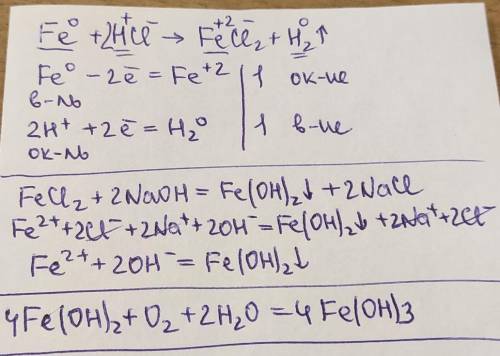 Fe⁰ + 2H⁺Cl⁻ → Fe⁺²Cl₂⁻ + H₂⁰↑
Fe⁰ − 2ē = Fe⁺² | 1 ок-ие
в-ль
2H⁺ + 2ē = H₂⁰ | 1 в-ие
ок-ль
FeCl₂ + 2NaOH = Fe(OH)₂↓ + 2NaCl
Fe²⁺ + 2Cl⁻ + 2Na⁺ + 2OH⁻ = Fe(OH)₂↓ + 2Na⁺ + 2Cl⁻
Fe²⁺ + 2OH⁻ = Fe(OH)₂↓
4Fe(OH)₂ + O₂ + 2H₂O = 4Fe(OH)3